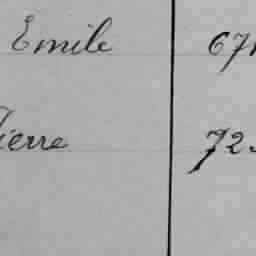 Emile 67
ierre 72